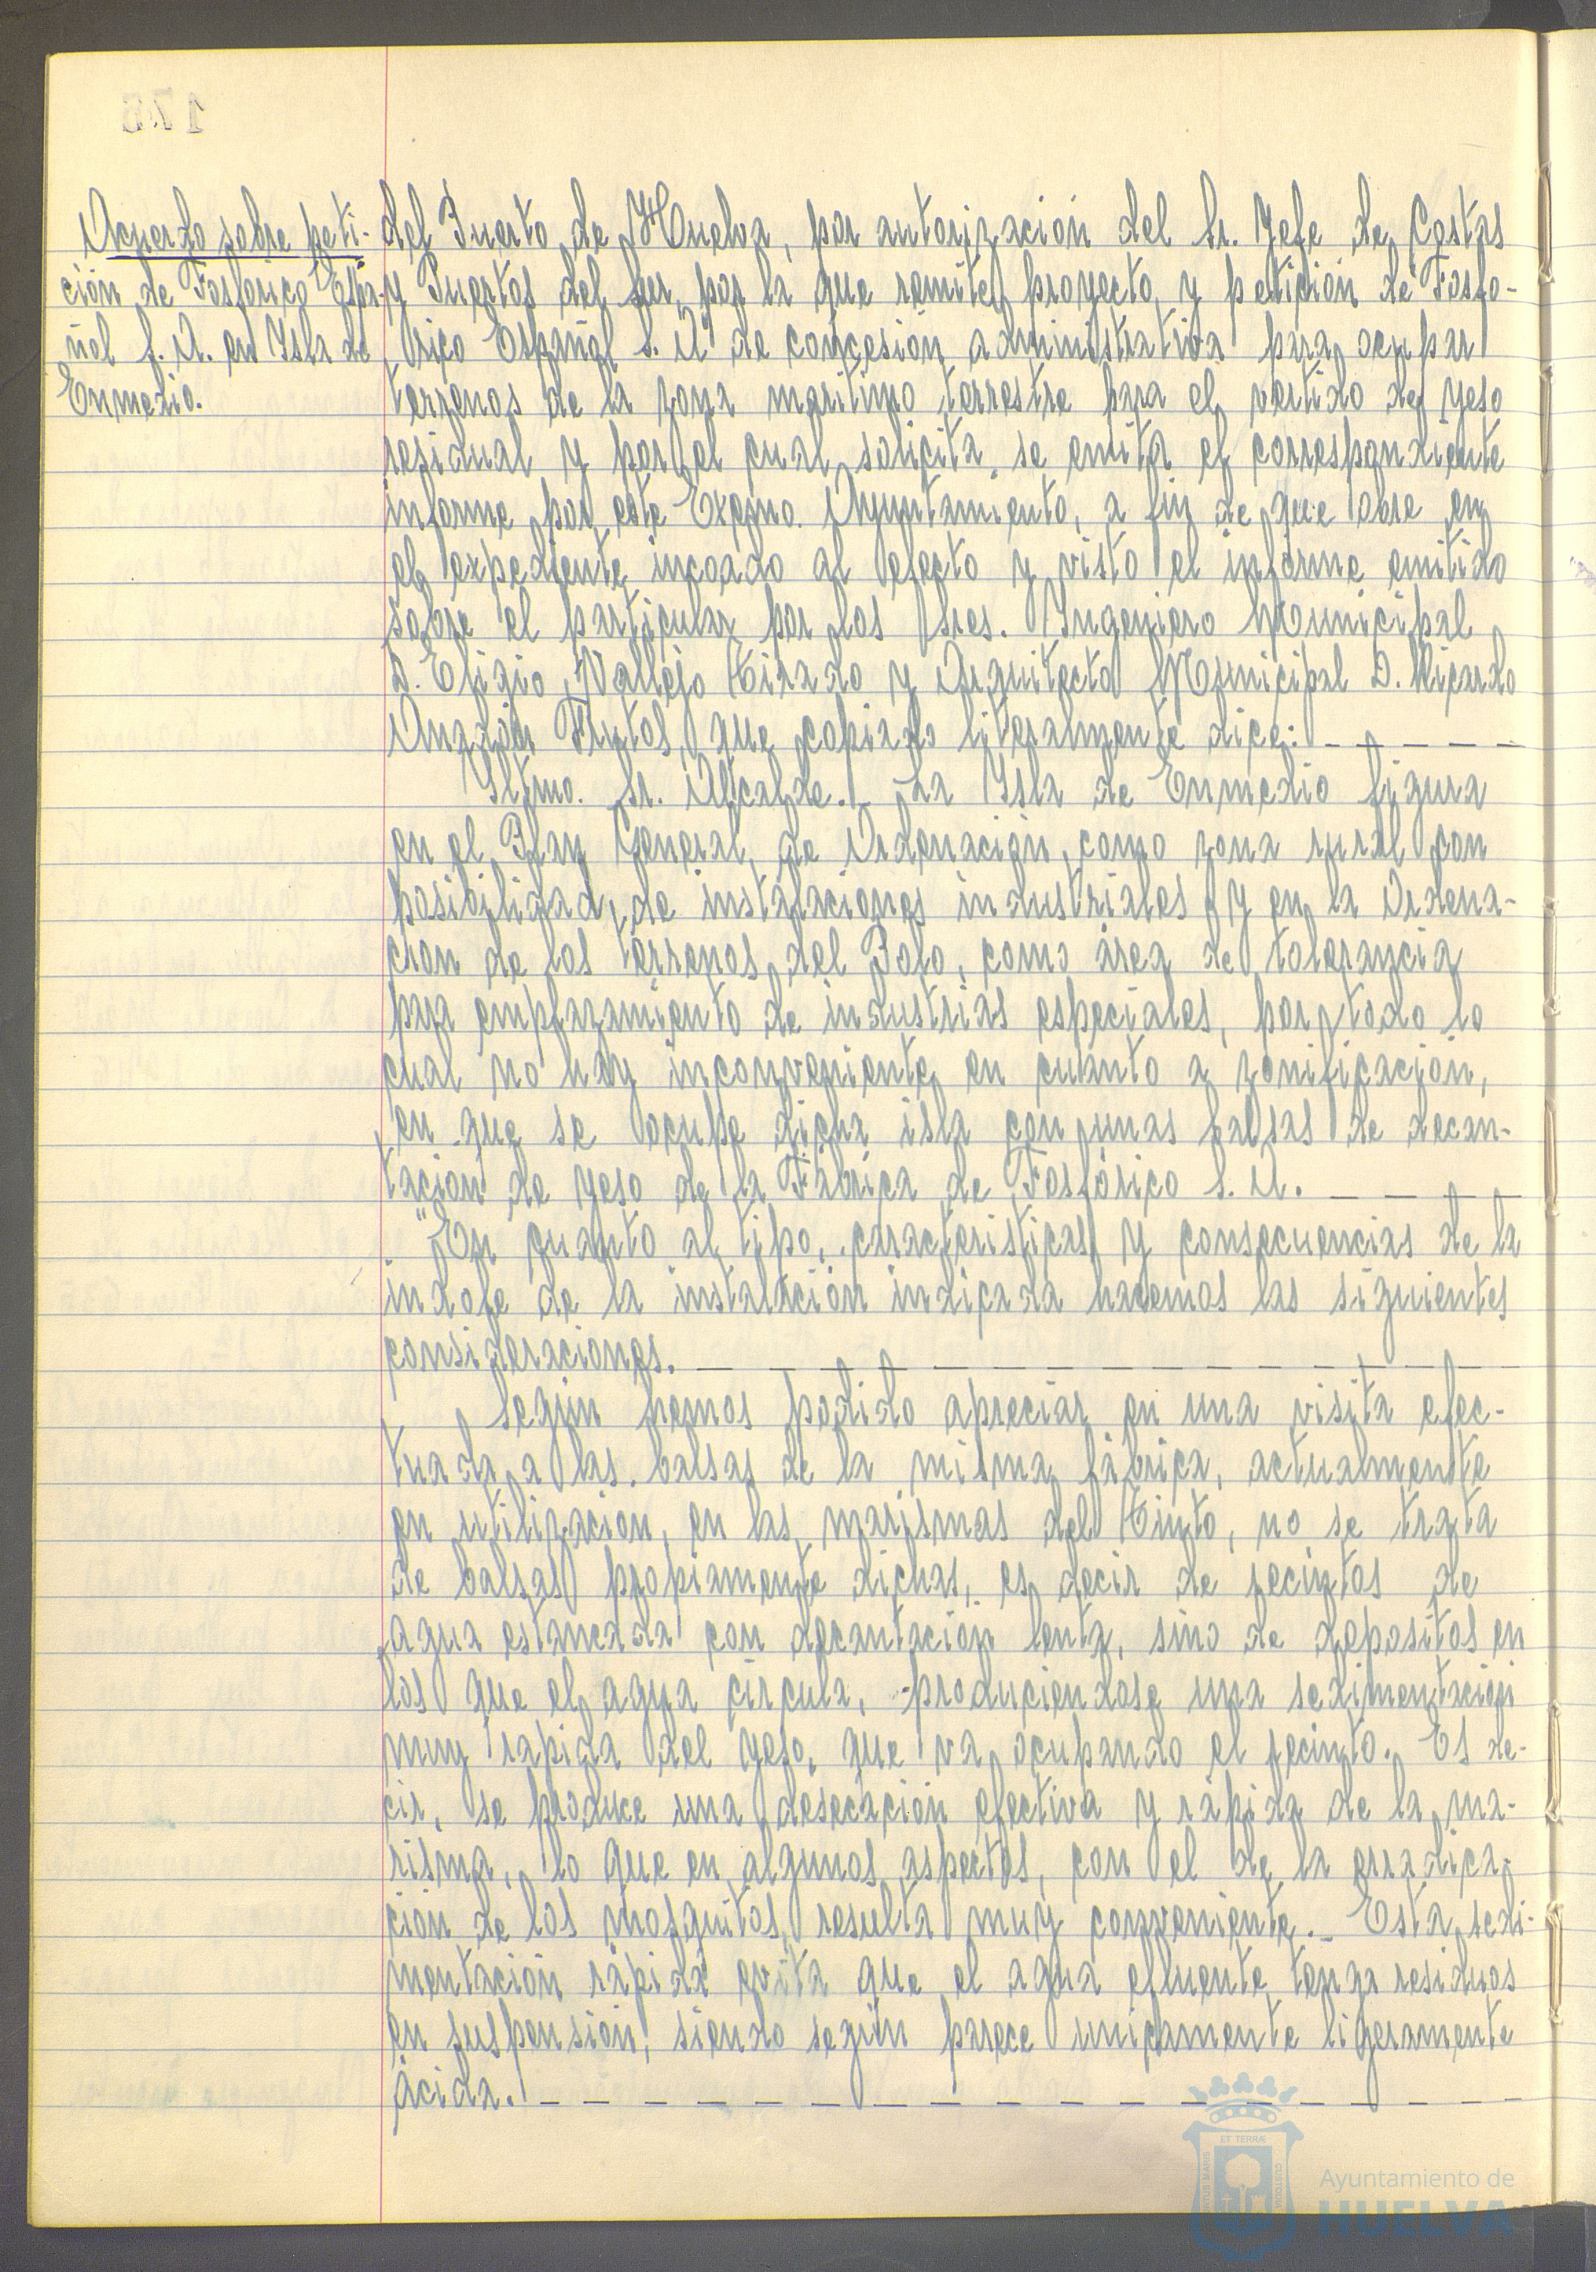 Acuerdo sobre peti-
ción de Fosfórico Espa-
ñol S. A. en Isla de
Enmedio.
del Puerto de Huelva, por autorización del Sr. Jefe de Costas
y Puertos del Sur, por la que remite proyecto y petición de Fosfo-
rico Español S. A. de concesión administrativa para ocupar
terrenos de la zona maritimo terrestre para el vertido de yeso
residual y por el cual solicita se emita el correspondiente
informe por este Excmo. Ayuntamiento, a fin de que obre en
el expediente incoado al efecto y visto el informe emitido
sobre el particular por los Sres. Ingeniero Municipal
D. Eligio Vallejo Tirado y Arquitecto Municipal D. Ricardo
Anadón Frutos, que copiado literalmente dice:
Iltmo. Sr. Alcalde. La Isla de Enmedio figura
en el Plan General de Ordenación, como zona rural con
posibilidad, de instalaciones industriales y en la Ordena-
ción de los terrenos del Polo, como área de tolerancia
para emplazamiento de industrias especiales, por todo lo
cual no hay inconveniente en cuanto a zonificación,
en que se ocupe dicha isla con unas balsas de decan-
tación de yeso de la Fábrica de Fosfórico S. A.
"En cuanto al tipo, características y consecuencias de la
indole de la instalación indicada hacemos las siguientes
consideraciones.
Según hemos podido apreciar en una visita efec-
tuada a las balsas de la misma fábrica, actualmente
en utilización, en las marismas del Tinto, no se trata
de balsas propiamente dichas, es decir de recintos de
agua estancada con decantación lenta, sino de depositos en
los que el agua circula, produciendose una sedimentación
muy rápida del yeso, que va ocupando el recinto. Es de-
cir, se produce una desecación efectiva y rápida de la ma-
risma, lo que en algunos aspectos, con el de la erradica-
ción de los mosquitos, resulta muy conveniente. Esta sedi-
mentación rápida evita que el agua efluente tenga residuos
en suspensión, siendo según parece unicamente ligeramente
ácida.
ET TERRÆ
Ayuntamiento de
HUELVA